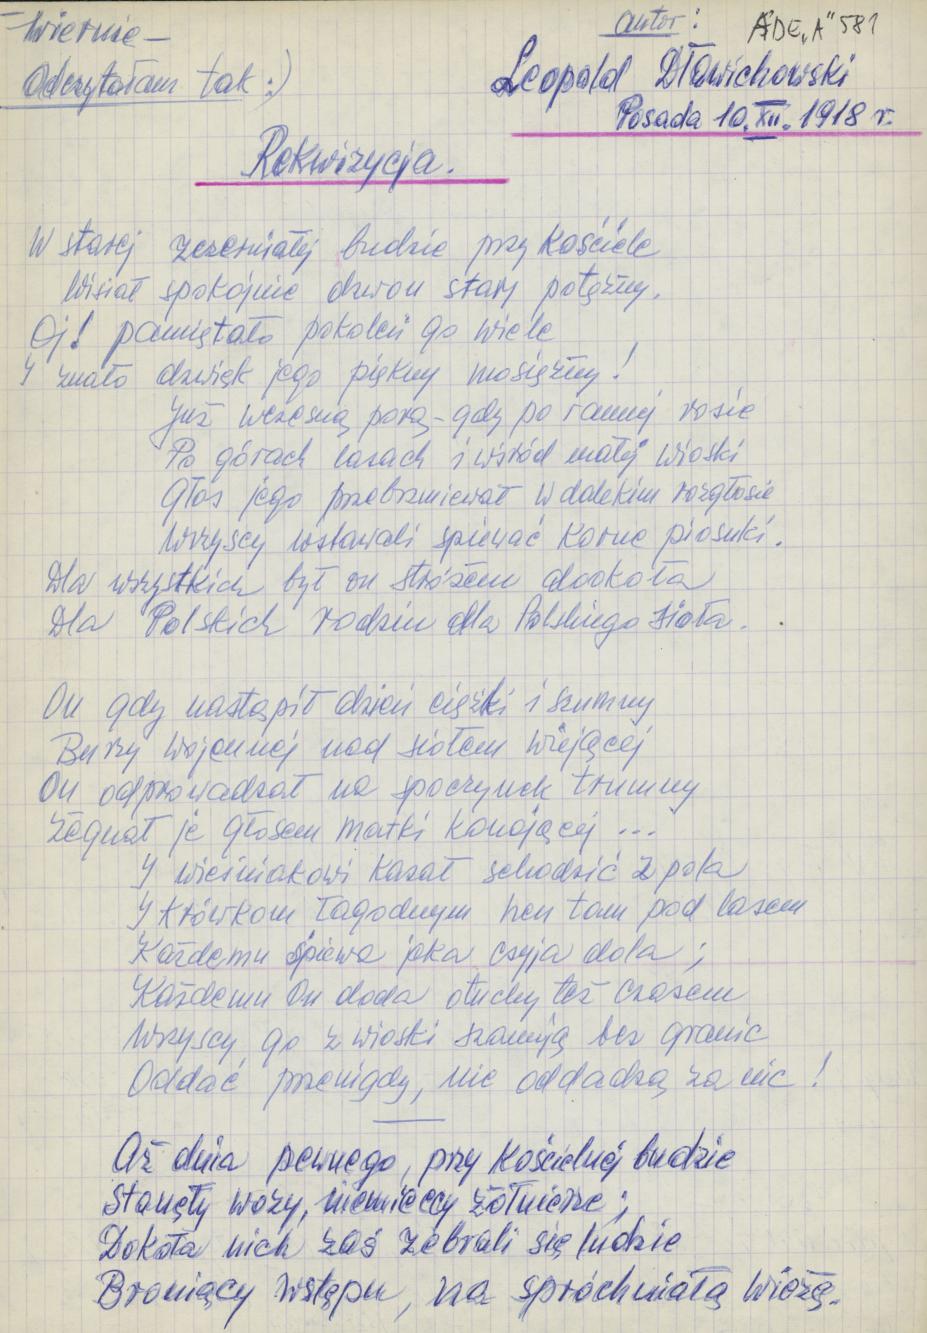 – Wiernie –
Odczytałam tak :)
autor : ADE „A" 581
Leopold Dławichowski
Posada 10. XII. 1918 r.
Rekwizycja.
W starej zczerniałej budzie przy Kościele
Wisiał spokojnie dzwon stary potężny.
Oj! pamiętało pokoleń go wiele
I znało dzwięk jego piękny mosiężny!
Już wczesną porą – gdy po rannej rosie
Po górach lasach i wśród małej wioski
Głos jego przebrzmiewał w dalekim rozgłosie
Wszyscy wstawali śpiewać korne piosnki.
Dla wszystkich był on stróżem dookoła
Dla Polskich rodzin dla Polskiego sioła.
On gdy nastąpił dzień ciężki i szumny
Burzy wojennej nad siołem wiejącej
On odprowadzał na spoczynek trumny
Żegnał je głosem matki konającej ...
I wieśniakowi kazał schodzić z pola
I krówkom łagodnym hen tam pod lasem
Każdemu śpiewa jaka czyja dola ;
Każdemu On doda otuchy też czasem
Wszyscy go z wioski szanują bez granic
Oddać przenigdy, nie oddadzą za nic !
Aż dnia pewnego, przy Kościelnej budzie
Stanęły wozy, niemieccy żołnierze ;
Dokoła nich zaś zebrali się ludzie
Broniący wstępu, na spróchniałą wieżę.